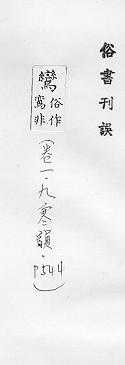 俗書刊誤
鸞俗作
鵉非
(卷一·九寒韻·
P544)